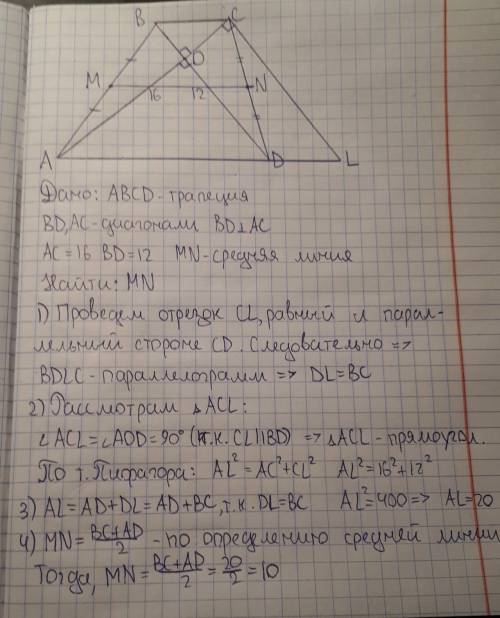 B C
O
M 16 12 N
A D L
Дано: ABCD - трапеция
BD, AC - диагонали BD⊥AC
AC = 16 BD = 12 MN - средняя линия
Найти: MN
1) Проведем отрезок CL, равный и парал-
лельный стороне CD. Следовательно =>
BDLC - параллелограмм => DL = BC
2) Рассмотрам △ACL:
∠ACL = ∠AOD = 90° (т.к. CL||BD) => △ACL - прямоугол.
По т. Пифагора: AL² = AC² + CL² AL² = 16² + 12²
3) AL = AD + DL = AD + BC, т.к. DL = BC AL² = 400 => AL = 20
4) MN = (BC + AD)/2 - по определению средней линии
Тогда, MN = (BC + AD)/2 = 20/2 = 10